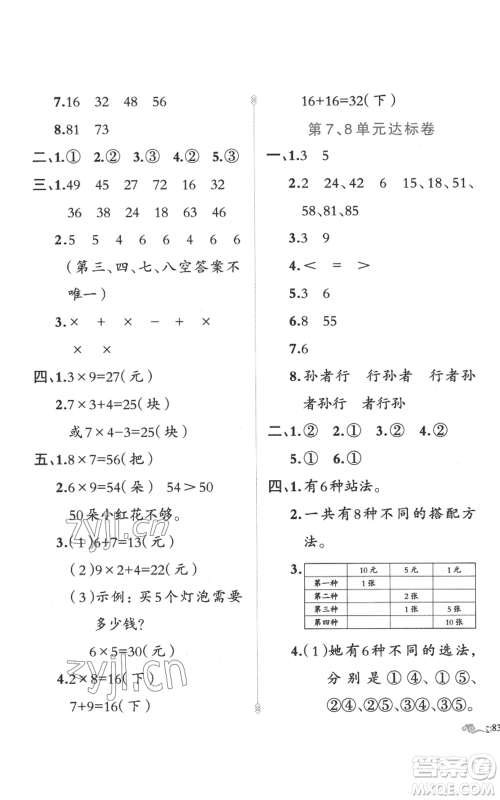 7.16 32 48 16
8.81 73
二、1.① 2.② 3.② 4.① 5.③
三、1.49 45 27 32 48
36 38 24 72 36
2.5 5 4 6 4 6 6
(第三、四、七、八空答案不
唯一)
3.× + × - ×
× ×
四、1.3×9=27(元)
2.7×3+4=25(块)
或7×4-3=25(块)
五、1.8×7=56(把)
2.6×9=54(朵) 54＞50
50朵小红花不够。
3.(1)6+7=13(元)
(2)9×2+4=22(元)
(3)示例:买5个灯泡需要
多少钱?
6×5=30(元)
4.2×8=16(下)
7+9=16(下)
16+16=32(下)
第7、8单元达标卷
一、1.3 5
2.2 24、42 15、18、51、
58、81、85
3.3 9
4.＜ ＝ ＞
5.3 6
6.8 55
7.6
8.孙者行 行孙者 行者孙
者孙行 者行孙
二、1.② 2.① 3.② 4.②
5.① 6.①
四、1.有6种站法。
2.一共有8种不同的搭配方
法。
3.
10元 5元 1元
第一种 1张
第二种 2张
第三种 1张 5张
第四种 10张
4.(1)她有6种不同的选法,
分别是①④、①⑤、
②④、②⑤、③④、③⑤。
83
zyjl.cn
zyjl.cn
答案圈
MXQE.COM